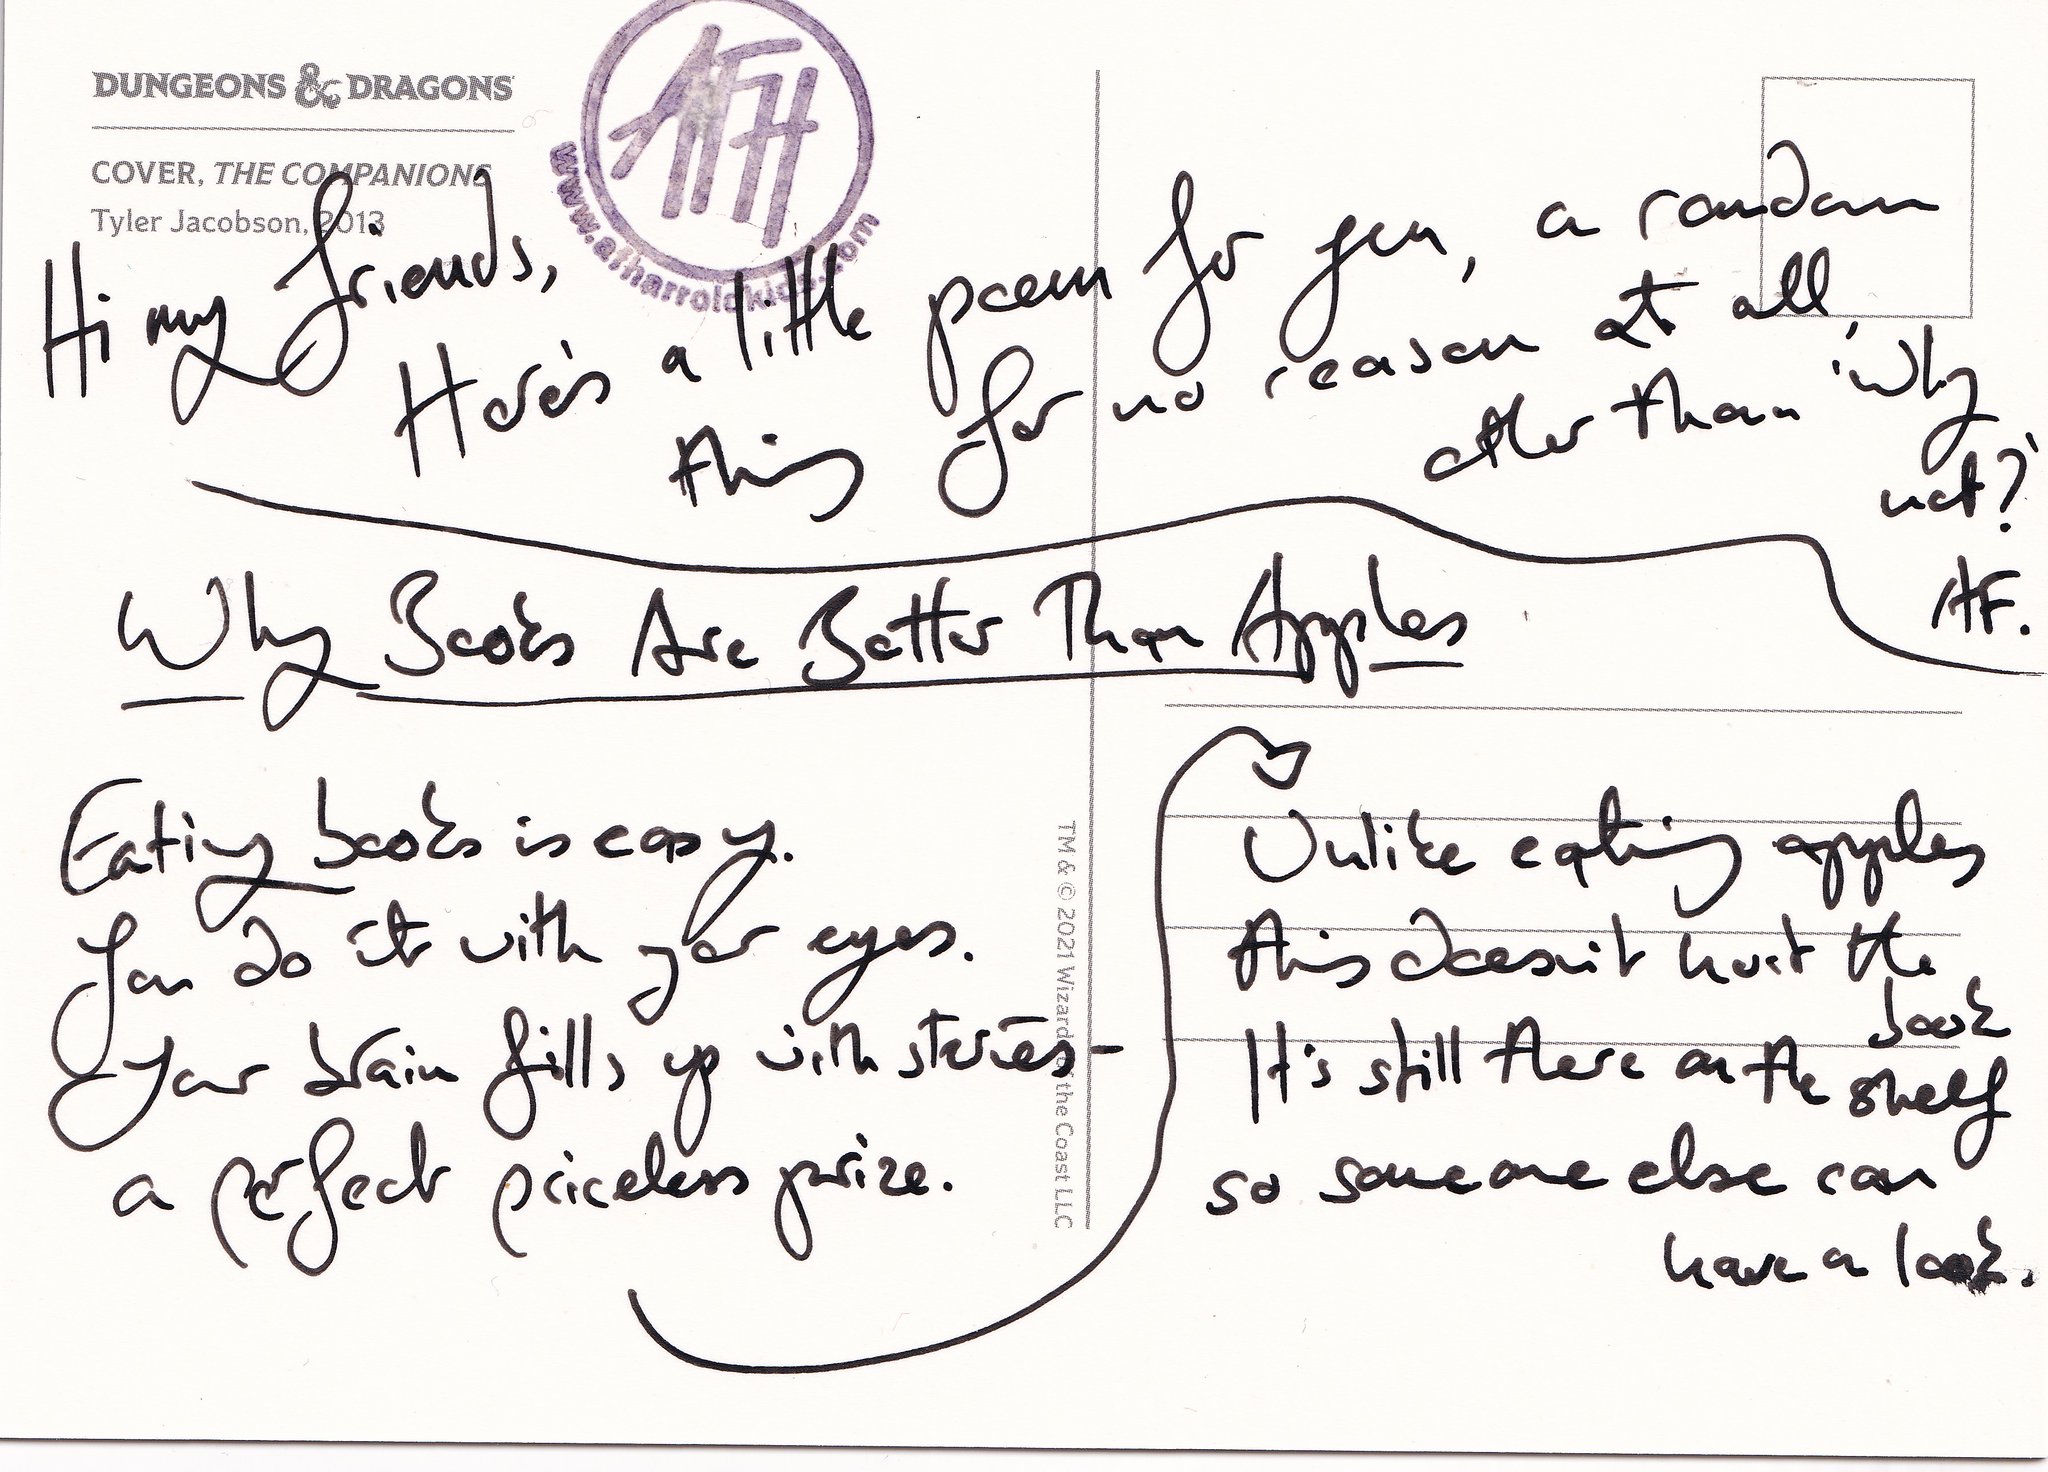 DUNGEONS & DRAGONS
COVER, THE COMPANIONS
Tyler Jacobson, 2013
AFH
www.afharroldkids.com
Hi my friends,
Here's a little poem for you, a random
thing for no reason at all,
other than 'why
not?'
AF.
Why Books Are Better Than Apples
Eating books is easy.
You do it with your eyes.
Your brain fills up with stories –
a perfect priceless prize.
Unlike eating apples
this doesn't hurt the
book
It's still there on the shelf
so someone else can
have a look.
TM & © 2021 Wizards of the Coast LLC